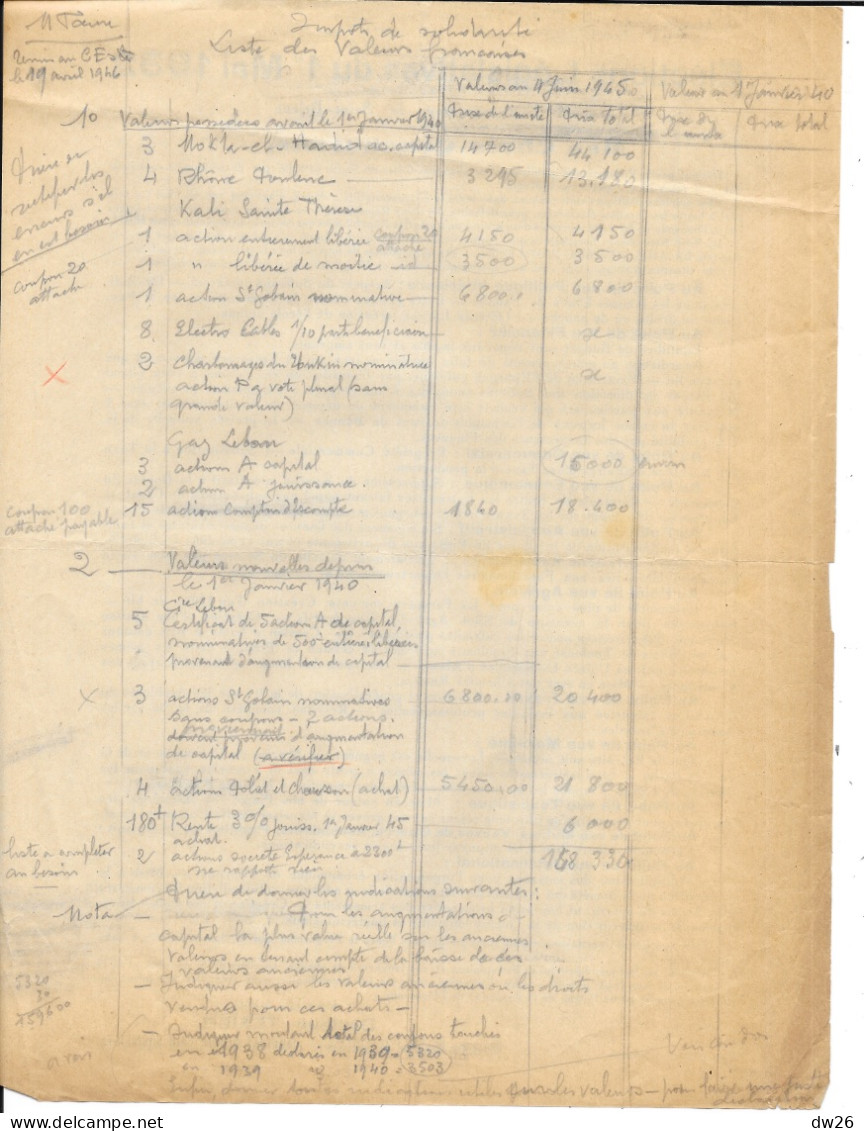 Impôt de solidarité
Liste des Valeurs françaises
le 19 avril 1946
Valeurs au 4 Juin 1945 Valeur au 1er Janvier 40
Prix total Prix total
1o Valeurs possédées avant le 1er Janvier 1940
3 Mokta-el-Hadid ac. capital 14700 44 100
Prière de rectifier les erreurs s'il en est besoin
4 Rhône Poulenc 3 295 13.180
Kali Sainte Thérèse
1 action entièrement libérée coupon 20 attaché 4150 4150
1 " libérée de moitié id 3500 3500
coupon 20 attaché
1 action St Gobain nominative 6800.0 6800
8 Electro Cables 1/10 part beneficiaire x
2 Charbonnages du Tonkin nominatives
action P a vote plural (sans x
grande valeur)
Gaz Lebon
3 actions A capital 15000 environ
2 action A jouissance.
coupon 100 attaché payable
15 actions Comptoir d'Escompte 1840 18.400
2 Valeurs nouvelles depuis
le 1er Janvier 1940
Cie Lebon
5 Certificat de 5 actions A de capital,
nominatives de 500 entières libérées
provenant d'augmentation de capital
x 3 actions St Gobain nominatives 6800.00 20 400
sans coupons - 2 actions.
doivent provenir d'augmentation
de capital (a vérifier)
4 actions Tolst et Chausson (achat) 5450.00 21 800
180 Rente 3% jouiss. 1er Janvier 45 6 000
achat.
liste a completer au besoin
2 actions société Espérance a 2300 168 330
ne rapporte rien
Prière de donner les indications suivantes:
Nota - Pour les augmentations de
capital la plus value réelle sur les anciennes
valeurs en tenant compte de la baisse de ces
valeurs anciennes
- Indiquer aussi les valeurs anciennes ou les droits
vendus pour ces achats -
5320
30
159600
- Indiquer montant total des coupons touchés
en 1938 déclarés en 1939 = 5320
en 1939 1940 = 3503
a voir
Enfin, donner toutes indications utiles
dw26